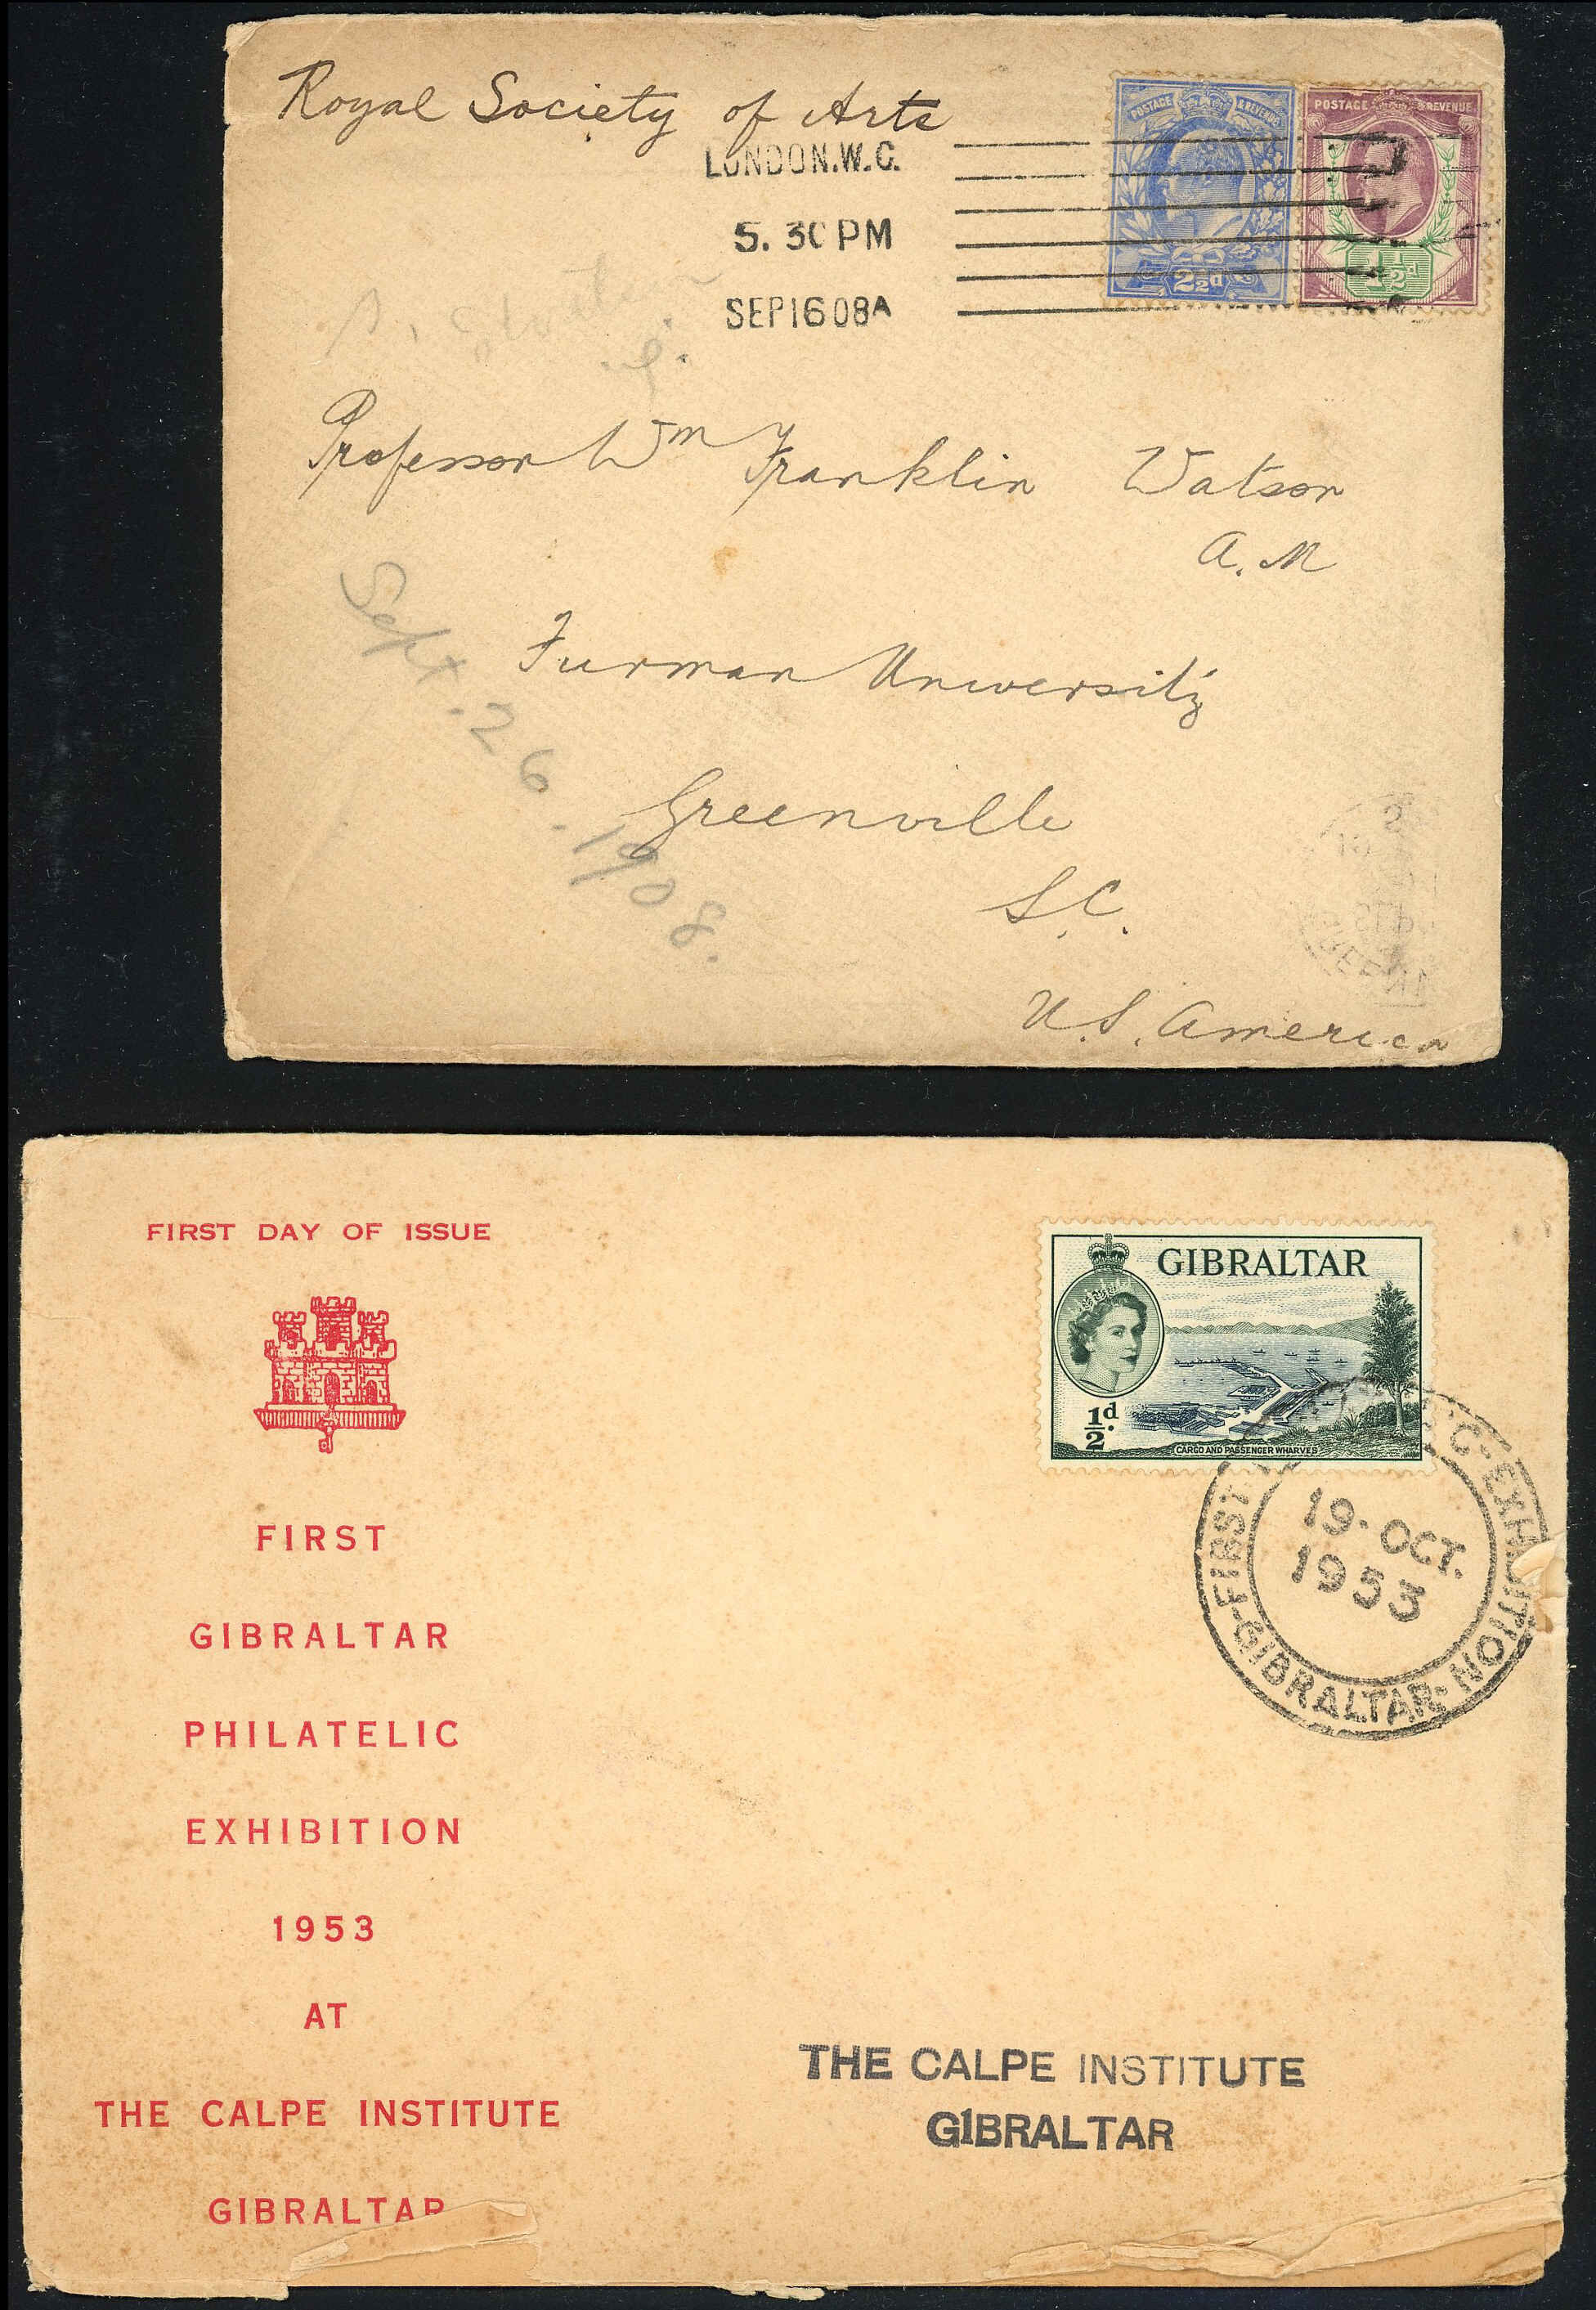 Royal Society of Arts
LONDON.W.C.
5. 30 PM
SEP 16 08 A
POSTAGE & REVENUE
2½d
POSTAGE & REVENUE
1½d
Professor Wm Franklin Watson
A.M
Furman University
Sept. 26. 1908.
Greenville
S.C.
U.S. America
FIRST DAY OF ISSUE
GIBRALTAR
½d.
CARGO AND PASSENGER WHARVES
FIRST C-EXHIBITION
-GIBRALTAR-
19. OCT.
1953
FIRST
GIBRALTAR
PHILATELIC
EXHIBITION
1953
AT
THE CALPE INSTITUTE
GIBRALTAR
THE CALPE INSTITUTE
GIBRALTAR